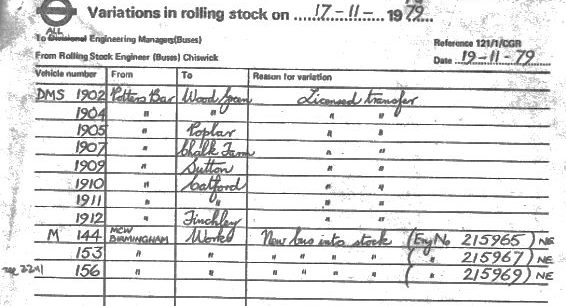 Variations in rolling stock on 17-11- 1979
ALL
To Divisional Engineering Managers (Buses)
Reference 121/1/CGR
From Rolling Stock Engineer (Buses) Chiswick
Date 19-11-79
Vehicle number From To Reason for variation
DMS 1902 Potters Bar Wood Green Licensed transfer
1904 " " "
1905 " Poplar " "
1907 " Chalk Farm " "
1909 " Sutton " "
1910 " Catford " "
1911 " " " "
1912 " Finchley " "
M 144 MCW BIRMINGHAM Works New bus into stock (Eng No 215965) NE
153 " " " " " " ( " 215967) NE
156 " " " " " " ( " 215969) NE